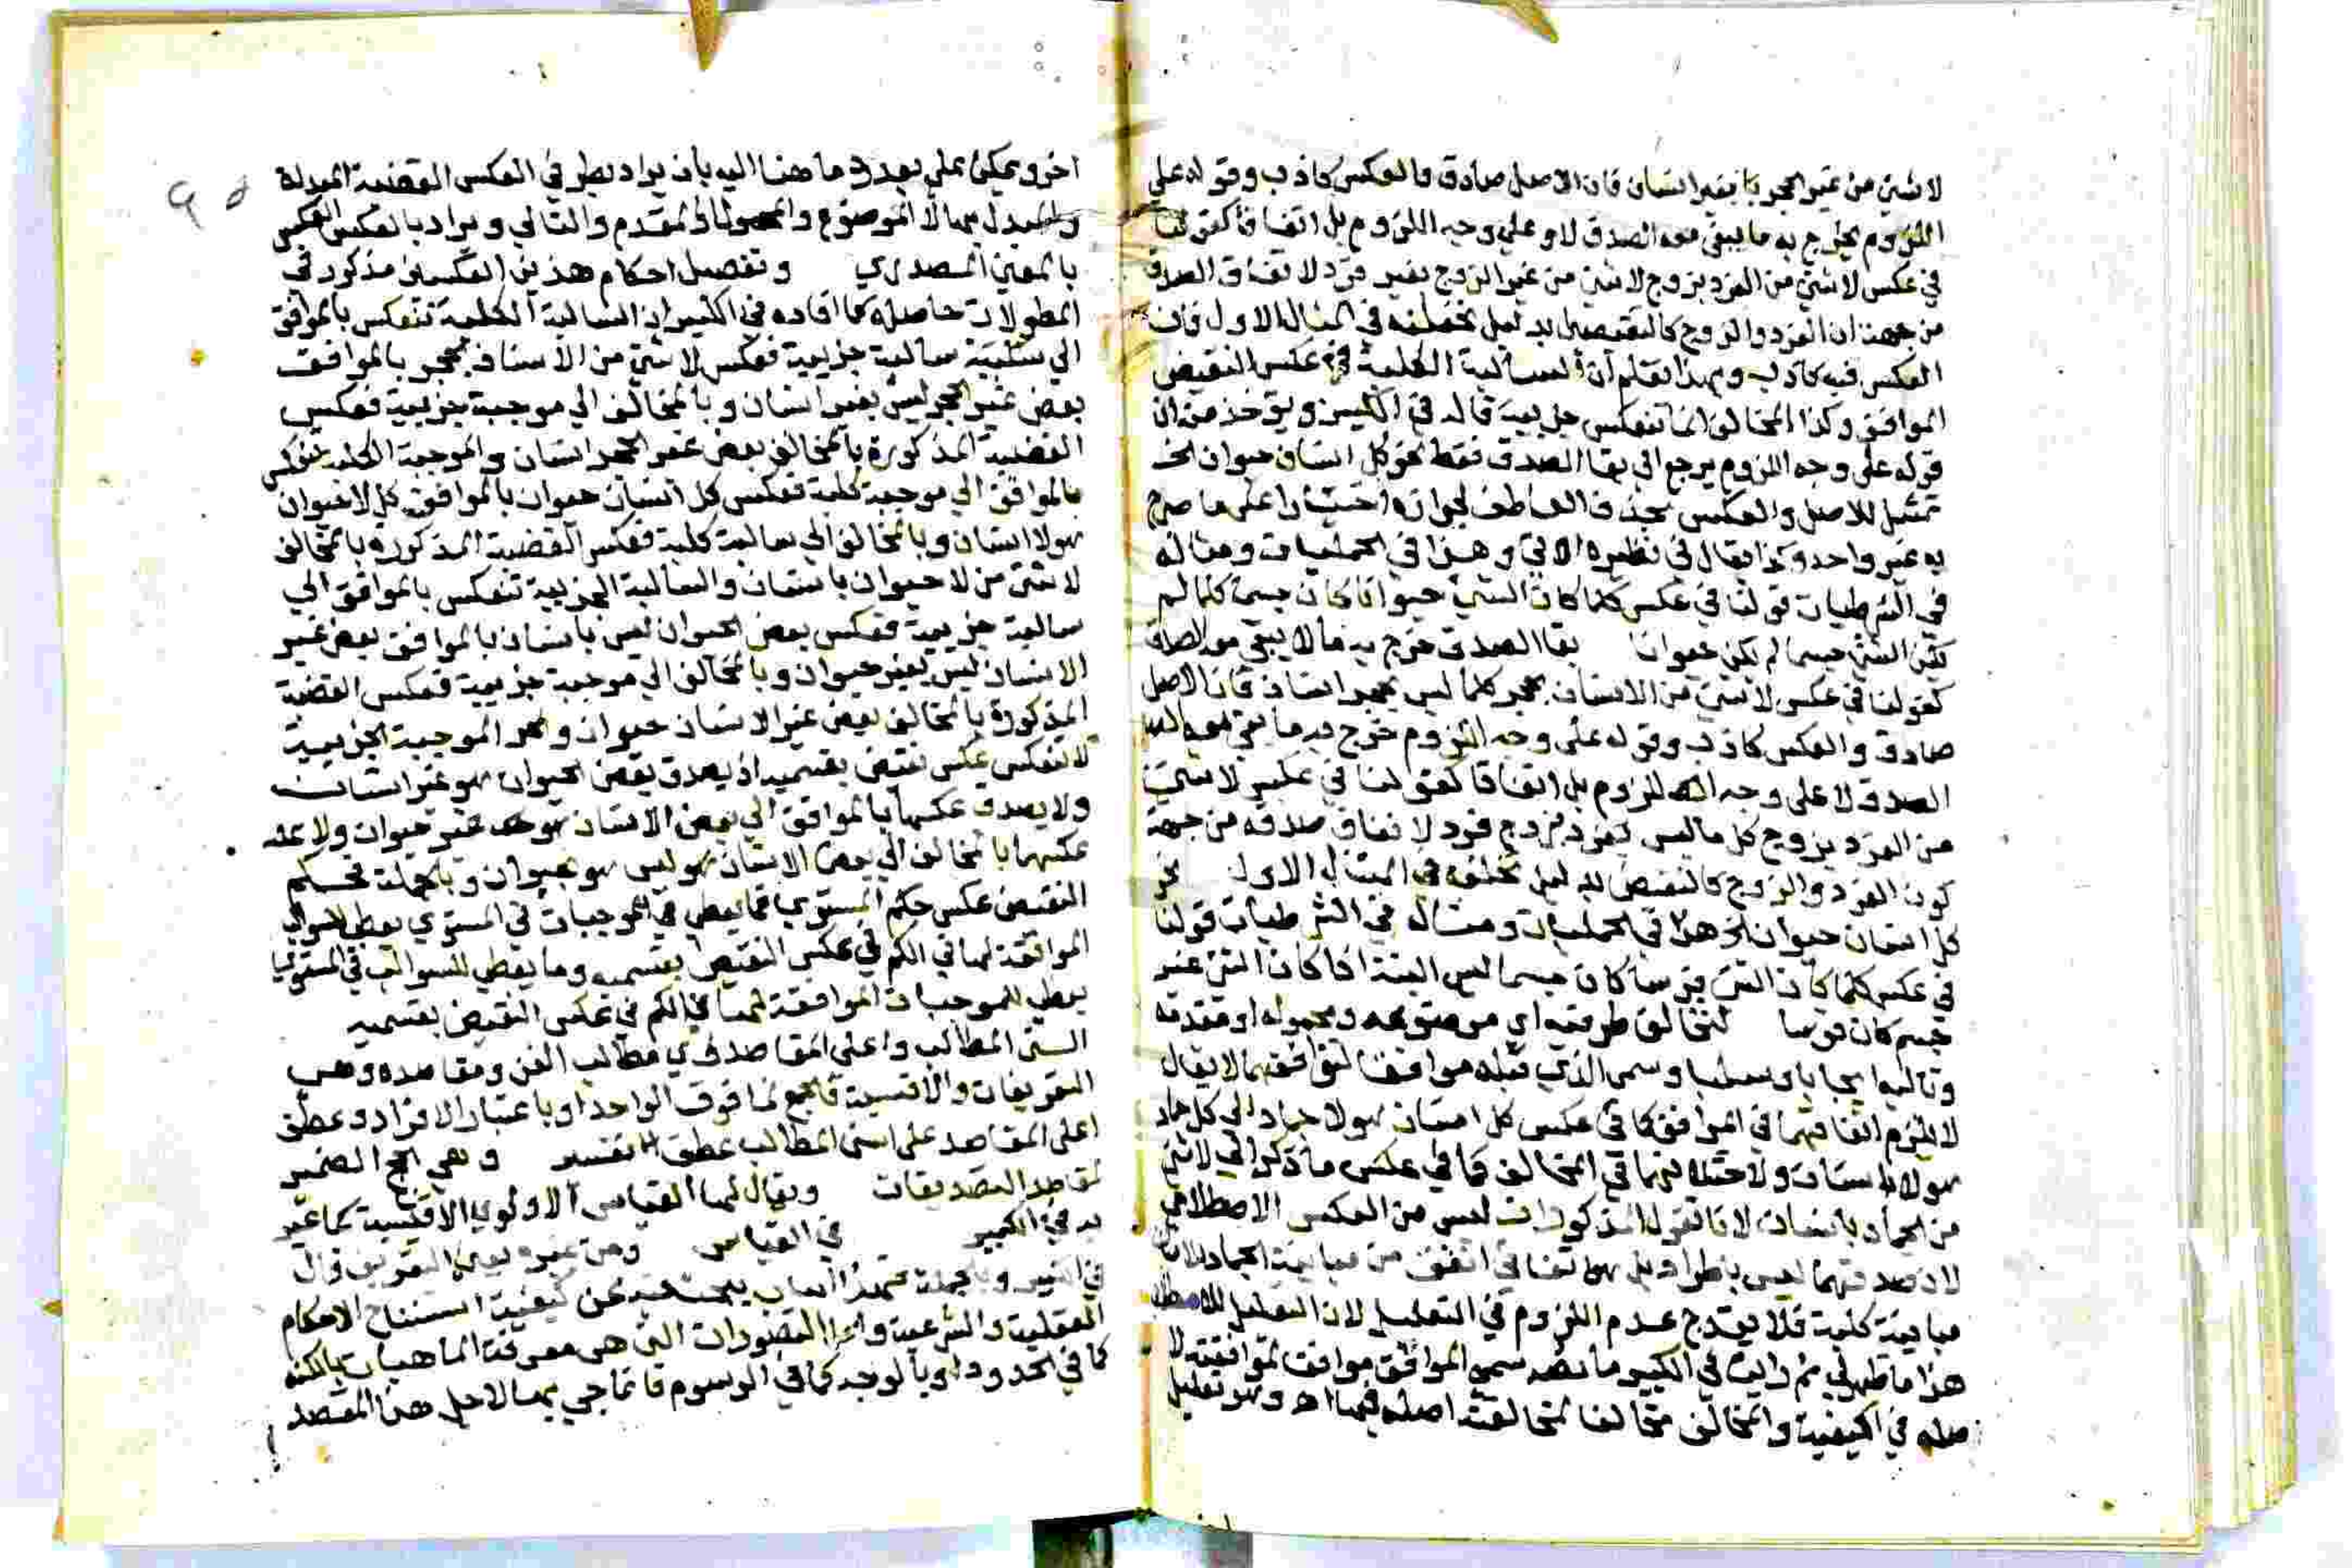 لا شئ من غير الحجر بغير انسان فان الاصل صادق والعكس كاذب وقوله علي
اللزوم يخرج به ما يبقي معه الصدق لا علي وجه اللزوم بل اتفاقا كقولنا
في عكس لا شئ من الفرد بزوج لا شئ من غير الزوج بغير فرد لاتفاق الصدق
من جهة ان الفرد والزوج كالنقيضين بدليل تخلفه في المثال الاول فان
العكس فيه كاذب وبهذا تعلم ان السالبة الكلية في عكس النقيض
الموافق وكذا المخالف انما تنعكس جزيية قال في الكبير ويؤخذ من ان
قوله علي وجه اللزوم يرجع الي بقا الصدق فقط نحو كل انسان حيوان الخ
تمثيل للاصل والعكس بحذف العاطف لجوازه اختيارا علي ما صرح
به غير واحد وكذا يقال في نظيره الاتي وهذا في الحمليات ومثاله
في الشرطيات قولنا في عكس كلما كان الشئ حيوانا كان جسما كلما لم
يكن الشئ جسما لم يكن حيوانا بقا الصدق خرج به ما لا يبقي معه الصدق
كقولنا في عكس لا شئ من الانسان بحجر كلما ليس بحجر انسان فان الاصل
صادق والعكس كاذب وقوله علي وجه اللزوم خرج به ما يبقي معه
الصدق لا علي وجه اللزوم بل اتفاقا كقولنا في عكس لا شئ
من الفرد بزوج كل ما ليس بزوج فرد لاتفاق صدقه من جهة
كون الفرد والزوج كالنقيض بدليل تخلفه في المثال الاول نحو
كل انسان حيوان الخ هذا في الحمليات ومثاله في الشرطيات قولنا
في عكس كلما كان الشئ فرسا كان جسما ليس البتة اذا كان الشئ غير
جسم كان فرسا لتخالف طرفيه اي موضوعه ومحموله او مقدمه
وتاليه ايجابا وسلبا وسمي الذي قبله موافقا لتوافقهما لا يقال
لا يلزم اتفاقهما في الموافق كما في عكس كل انسان هو لا جماد الي كل جماد
هو لا انسان ولا اختلافهما في المخالف كما في عكس ما ذكر الي لا شئ
من الجماد بانسان لانا نقول المذكورات ليس من العكس الاصطلاحي
لان صدقهما ليس بطراد بل اتفاقي اتفق من مباينة الجماد للانسان
مباينة كلية فلا يقدح عدم اللزوم في التعليل لان التعليل
هذا ما ظهر لي ثم رايت في الكبير ما نصه سمي الموافق موافقا لموافقته لا
صله في الكيفية والمخالف مخالفا لمخالفته اصله فيها اهـ وهو تعليل
اخر ويمكن علي بعد رد ما هنا اليه بان يراد بطرفي العكس القضية المبدلة
والمبدل بها لا الموضوع والمحمول والمقدم والتالي ويراد بالعكس العكس
بالمعني المصدري وتفصيل احكام هذين العكسين مذكور في
المطولات حاصله كما افاده في الكبير ان السالبة الكلية تنعكس بالموافق
الي سالبة جزيية فعكس لا شئ من الانسان بحجر بالموافق
بعض غير الحجر ليس بغير انسان وبالمخالف الي موجبة جزيية فعكس
القضية المذكورة بالمخالف بعض غير الحجر انسان والموجبة الكلية تنعكس
بالموافق الي موجبة كلية فعكس كل انسان حيوان بالموافق كل لا حيوان
هو لا انسان وبالمخالف الي سالبة كلية فعكس القضية المذكورة بالمخالف
لا شئ من لا حيوان بانسان والسالبة الجزيية تنعكس بالموافق الي
سالبة جزيية فعكس بعض الحيوان ليس بانسان بالموافق بعض غير
الانسان ليس بغير حيوان وبالمخالف الي موجبة جزيية فعكس القضية
المذكورة بالمخالف بعض غير الانسان حيوان والموجبة الجزيية
لا تنعكس عكس نقيض بقسميه اذ يصدق بعض الحيوان هو غير انسان
ولا يصدق عكسها بالموافق الي بعض الانسان هو غير حيوان ولا
عكسها بالمخالف الي بعض الانسان هو ليس هو بحيوان وبالجملة فحكم
النقيض عكس حكم المستوي فما يعطي في الموجبات في المستوي يعطي للسوالب
الموافقة لها في الكم في عكس النقيض بقسميه وما يعطي للسوالب في المستوي
يعطي للموجبات الموافقة لها في الكم في عكس النقيض بقسميه
اسني المطالب واعلي المقاصد اي مطالب الفن ومقاصده وهي
التعريفات والاقيسة فالجمع لما فوق الواحد او باعتبار الافراد وعطف
اعلي المقاصد علي اسني المطالب عطف تفسير وهي الحج الضمير
لمقاصد التصديقات ويقال لها القياس الاولي الاقيسة كما عبر
به في الكبير في القياس ومن غيره يعني التعريف قال
في الكبير وبالجملة فهذا الباب يبحث فيه عن كيفية استنتاج الاحكام
العقلية والشرعية واما التصورات التي هي معرفة الماهيات بالكنه
كما في الحدود او بالوجه كما في الرسوم فانما جئ بها لاجل هذا المقصد